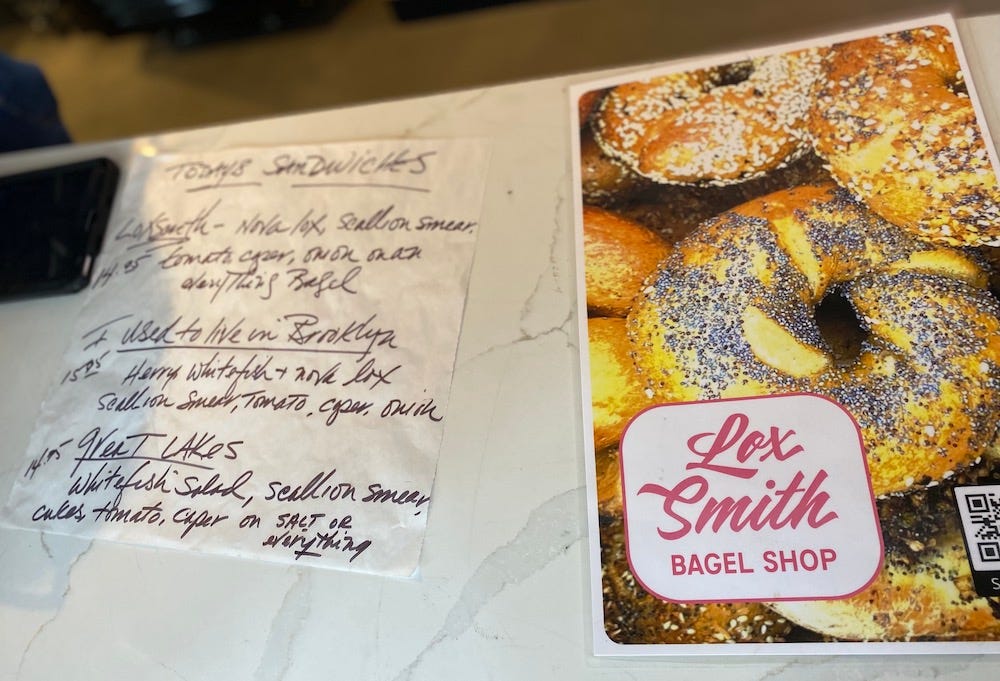 TODAYS SANDWICHES
LoxSmith - Nova lox, scallion smear,
14.95 tomato caper, onion on an
everything Bagel
I used to live in Brooklyn
15.95 Whitefish + nova lox
scallion smear, Tomato, caper, onion
14.95 Great Lakes
Whitefish Salad, scallion smear,
cukes, tomato, caper on SALT OR
everything
Lox
Smith
BAGEL SHOP